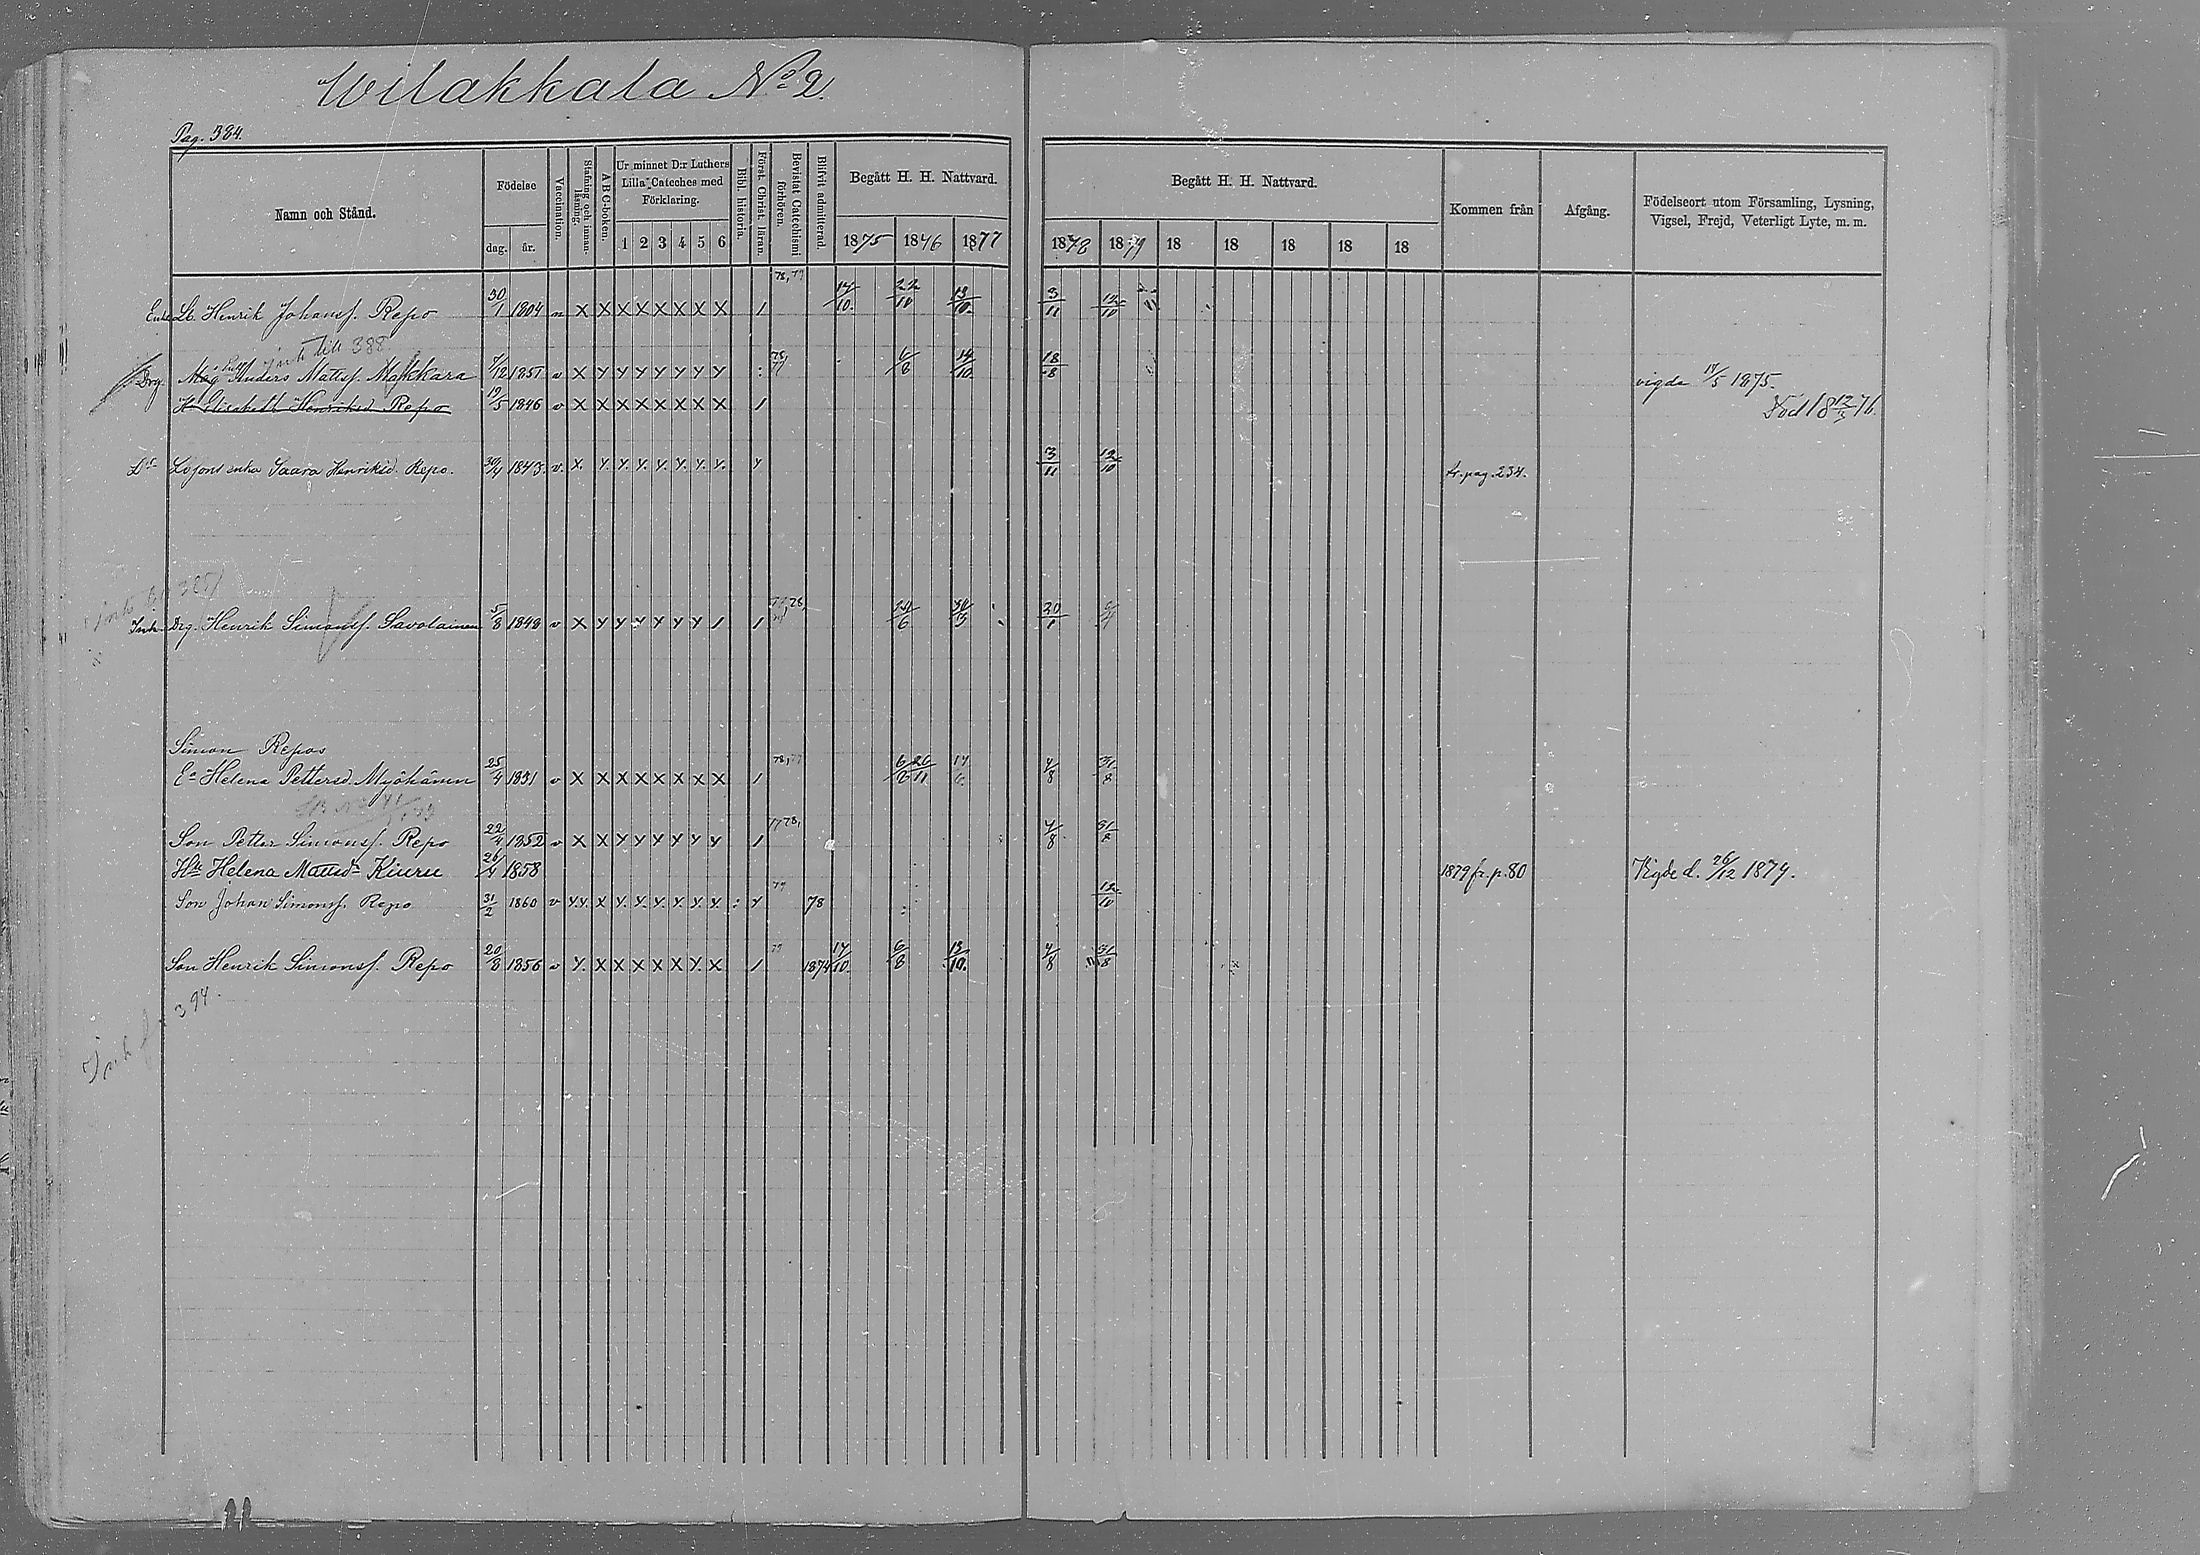 Wilakkala No 2.
Pag. 384.
Namn och Stånd. Födelse dag. år. Vaccination. Stafning och innanläsning. A B C-boken. Ur minnet D:r Luthers Lilla Cateches med Förklaring. 1 2 3 4 5 6 Bibl. historia. Först. Christ. läran. Bevistat Catechismi förhören. Blifvit admitterad Begått H. H. Nattvard. 1875 1876 1877
Begått H. H. Nattvard. 1878 1879 18 18 18 18 18 Kommen från Afgång. Födelseort utom Församling, Lysning, Vigsel, Frejd, Veterligt Lyte, m. m.
78, 79
Lb. Henrik Johansf. Repo 30/1 1804 n X X X X X X X X / 17/10. 22/10 13/10. 3/11 12/10
till 388
Drg. Måg Anders Mattsf. Makkara 7/12 1851 v X Y Y Y Y Y Y Y 6/8 14/10. 18/8 vigde 17/5 1875.
H. Elisabeth Henriksd Repo 19/5 1846 v X X X X X X X X / Död 18 12/3 76.
Dr Lojont enka Saara Henriksd. Repo. 30/4 1843. v. X. Y. Y. Y. Y. Y. Y. Y. Y 3/11 12/10 fr. pag. 234.
Inh. Drg. Henrik Simonsf. Savolainen 5/8 1848 v X Y Y Y Y Y Y / / 20/1
Simon Repos
Ea Helena Pettersd Myöhänen 25/4 1831 v X X X X X X X X / 78, 77 6/8 26/11 4/8 31/8
Son Petter Simonsf. Repo 22/4 1852 v X X Y Y Y Y Y Y / 77 78, 4/8 31/8
Hu Helena Mattsdr Kiuru 26/4 1858 1879 fr. p. 80 Vigde d. 26/12 1879.
Son Johan Simonsf. Repo 31/2 1860 v Y.Y. X Y. Y. Y. Y. Y. Y. : Y 79 78 12/10
Son Henrik Simonsf. Repo 20/8 1856 v Y. X X X X X Y. X / 79 1874 17/10. 6/8 13/10. 4/8 31/8
394.